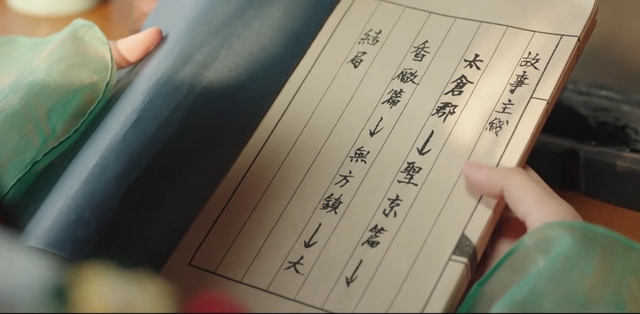 故事主綫
太倉郡→聖京篇→
香厰篇→無方鎮→大
結局